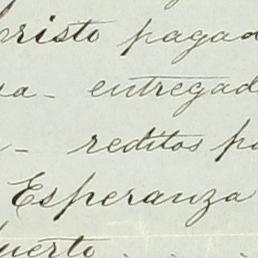 risto pagad
a - entregad
- reditos pa
Esperanza
uerto . . .